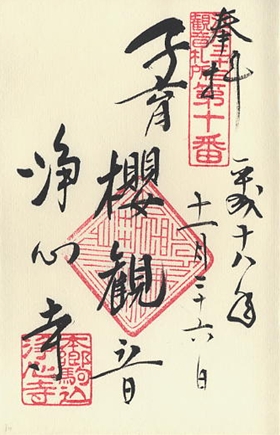 奉拝
観音札所
第十番
平成十八年
十一月二十六日
子育
櫻観音
浄心寺
本郷駒込
浄心寺